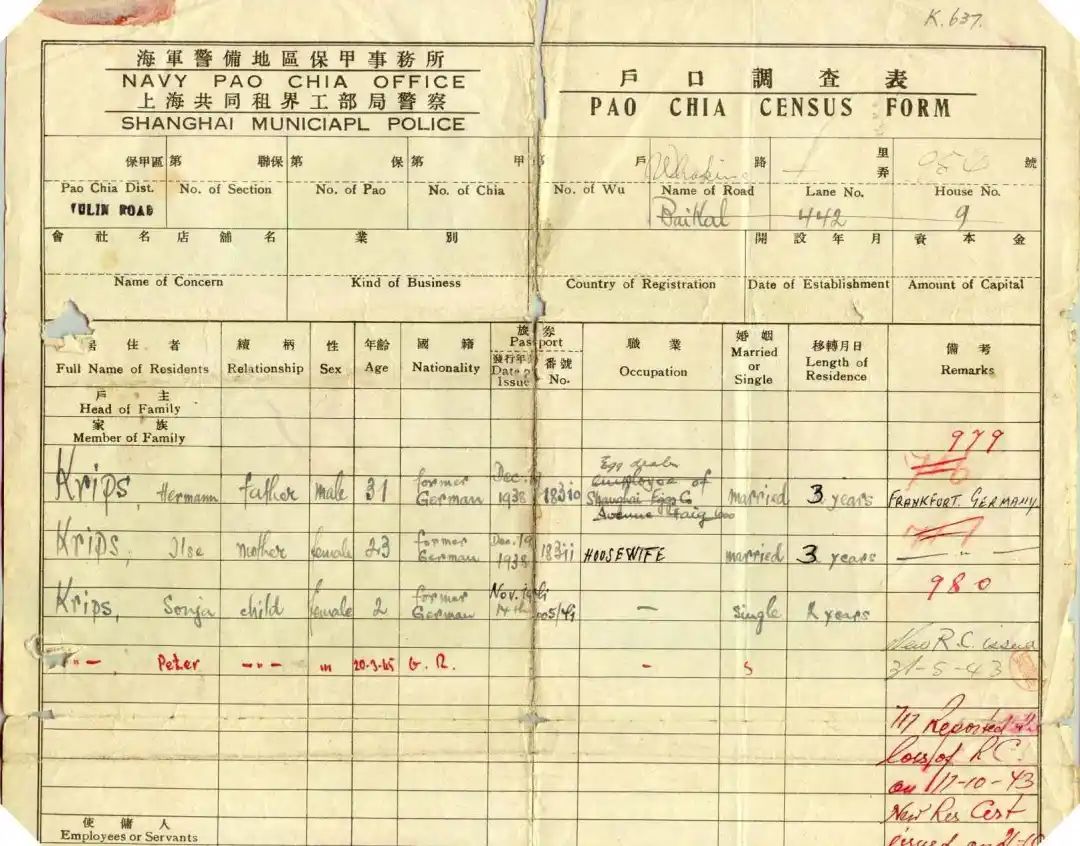 K.637.
海軍警備地區保甲事務所
NAVY PAO CHIA OFFICE
上海共同租界工部局警察
SHANGHAI MUNICIAPL POLICE
戶口調查表
PAO CHIA CENSUS FORM
保甲區 第 聯保 第 保 第 甲 戶 路 里弄 號
Pao Chia Dist. No. of Section No. of Pao No. of Chia No. of Wu Name of Road Lane No. House No.
YULIN ROAD Baikal 442 9
會社名店舖名 業別 開設年月 資本金
Name of Concern Kind of Business Country of Registration Date of Establishment Amount of Capital
居住者 續柄 性 年齡 國籍 旅券 職業 婚姻 移轉月日 備考
Full Name of Residents Relationship Sex Age Nationality Passport Occupation Married or Single Length of Residence Remarks
發行年 番號
Date of Issue No.
戶主
Head of Family
家族
Member of Family
979
Krips, Hermann father male 31 former German Dec. 1938 18310 Egg dealer employee of Shanghai Egg Co Avenue Haig married 3 years FRANKFORT. GERMANY
Krips, Ilse mother female 23 former German Dec. 19 1938 183ii HOUSEWIFE married 3 years — " —
980
Krips, Sonja child female 2 former German Nov. 14th — single 2 years
New R.C. issued
31-5-43
— " — Peter — " — m 20-3-45 G. R. - s
717 Reported
loss of R.C.
on 17-10-43
New Res Cert
issued
使傭人
Employees or Servants